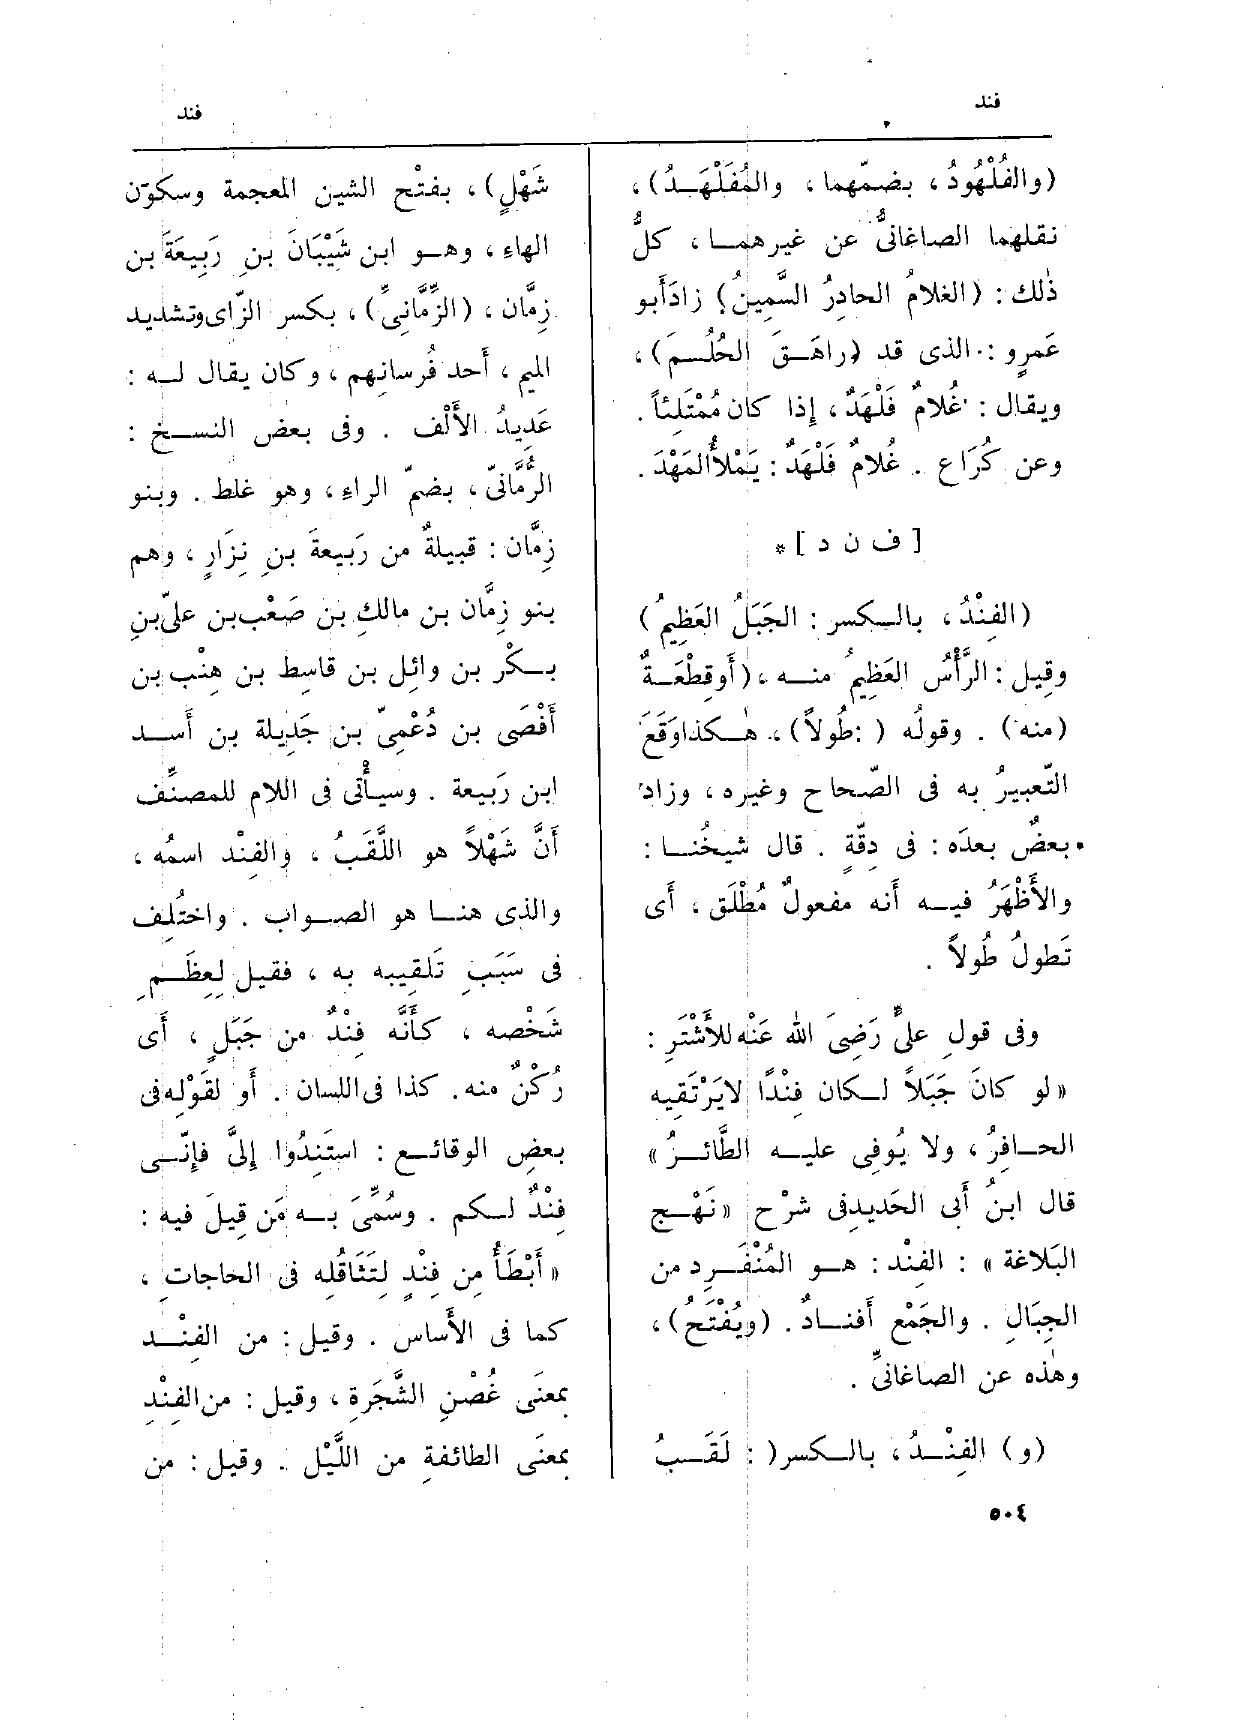 فند
فند
(والفُلْهُودُ ، بضمّهما ، والمُفَلْهَــدُ) ،
نقلهما الصاغانىُّ عن غيرهمــا ، كلُّ
ذٰلك : (الغلامُ الحادِرُ السَّمِينُ) زادَأَبو
عَمرٍو : الذى قد (راهَــقَ الحُلُــمَ) ،
ويقال : غُلامٌ فَلْهَدٌ ، إِذا كان مُمْتَلئاً .
وعن كُرَاع . غُلامٌ فَلْهَدٌ : يَمْلأُالمَهْدَ .
[ ف ن د ] *
(الفِنْدُ ، بالــكسر : الجَبَلُ العَظِيمُ)
وقِيل : الرَّأْسُ العَظِيمُ منــه ، (أَوقِطْعَــةٌ
(منه) . وقولُه ( : طُولاً) ، هٰــكذاوَقَعَ
التَّعبيرُ به فى الصّحاح وغيره ، وزاد
بعضٌ بعدَه : فى دِقَّةٍ . قال شيخُنــا :
والأَظْهَرُ فيــه أَنه مفعولٌ مُطْلَق ، أَى
تَطولُ طُولاً .
وفى قول علىٍّ رَضِىَ اللهُ عَنْه للأَشْتَرِ :
« لو كانَ جَبَلاً لــكان فِنْدًا لايَرْتَقيه
الحــافِرُ ، ولا يُوفِى عليــه الطَّائــرُ »
قال ابنُ أَبى الحَديدفى شرْح « نَهْــج
البَلاغة » : الفِنْد : هــو المُنْفَــرِد من
الجِبَالِ . والجَمْع أَفنــادٌ . (ويُفْتَحُ) ،
وهٰذه عن الصاغانىِّ .
(و) الفِنْــدُ ، بالــكسر( : لَقَــبُ
شَهْلٍ) ، بفتْح الشين المعجمة وسكون
الهاء ، وهــو ابن شَيْبَانَ بنِ رَبِيعَةَ بن
زِمَّان ، (الزِّمَّانِىِّ) ، بكسر الزّاى وتشديد
الميم ، أَحد فُرسانِهم ، وكان يقال لــه :
عَدِيدُ الأَلْف . وفى بعض النســخ :
الرُّمَّانىّ ، بضمّ الراء ، وهو غلط . وبنو
زِمَّان : قبيلةٌ من رَبِيعةَ بنِ نِزَارٍ ، وهم
بنو زِمَّان بن مالكِ بن صَعْب بن علىّ بنِ
بــكْر بن وائِل بن قاسِط بن هِنْب بن
أَفْصَى بن دُعْمِىّ بن جَدِيلة بن أَســد
ابن رَبيعة . وسيأْتى فى اللام للمصنِّف
أَنَّ شَهْلاً هو اللَّقَبُ ، والفِنْد اسمُه ،
والذى هنــا هو الصــواب . واختُلِف
فى سَبَبِ تَلقِيبه به ، فقيل لِعِظَــمِ
شَخْصه ، كأَنَّه فِنْدٌ من جَبَلٍ ، أَى
رُكْنٌ منه . كذا فى اللسان . أَو لقَوْلِه فى
بعضِ الوقائــع : استَنِدُوا إِلىَّ فإِنّــى
فِنْدٌ لــكم . وسُمِّىَ بــه مَن قِيلَ فيه :
« أَبْطَأُ مِن فِنْدٍ لِتَثَاقُلِه فى الحاجاتِ ،
كما فى الأَساس . وقيل : من الفِنْــد
بمعنَى غُصْنِ الشَّجَرةِ ، وقيل : من الفِنْدِ
بمعنَى الطائفةِ من اللَّيْل . وقيل : من
٥٠٤